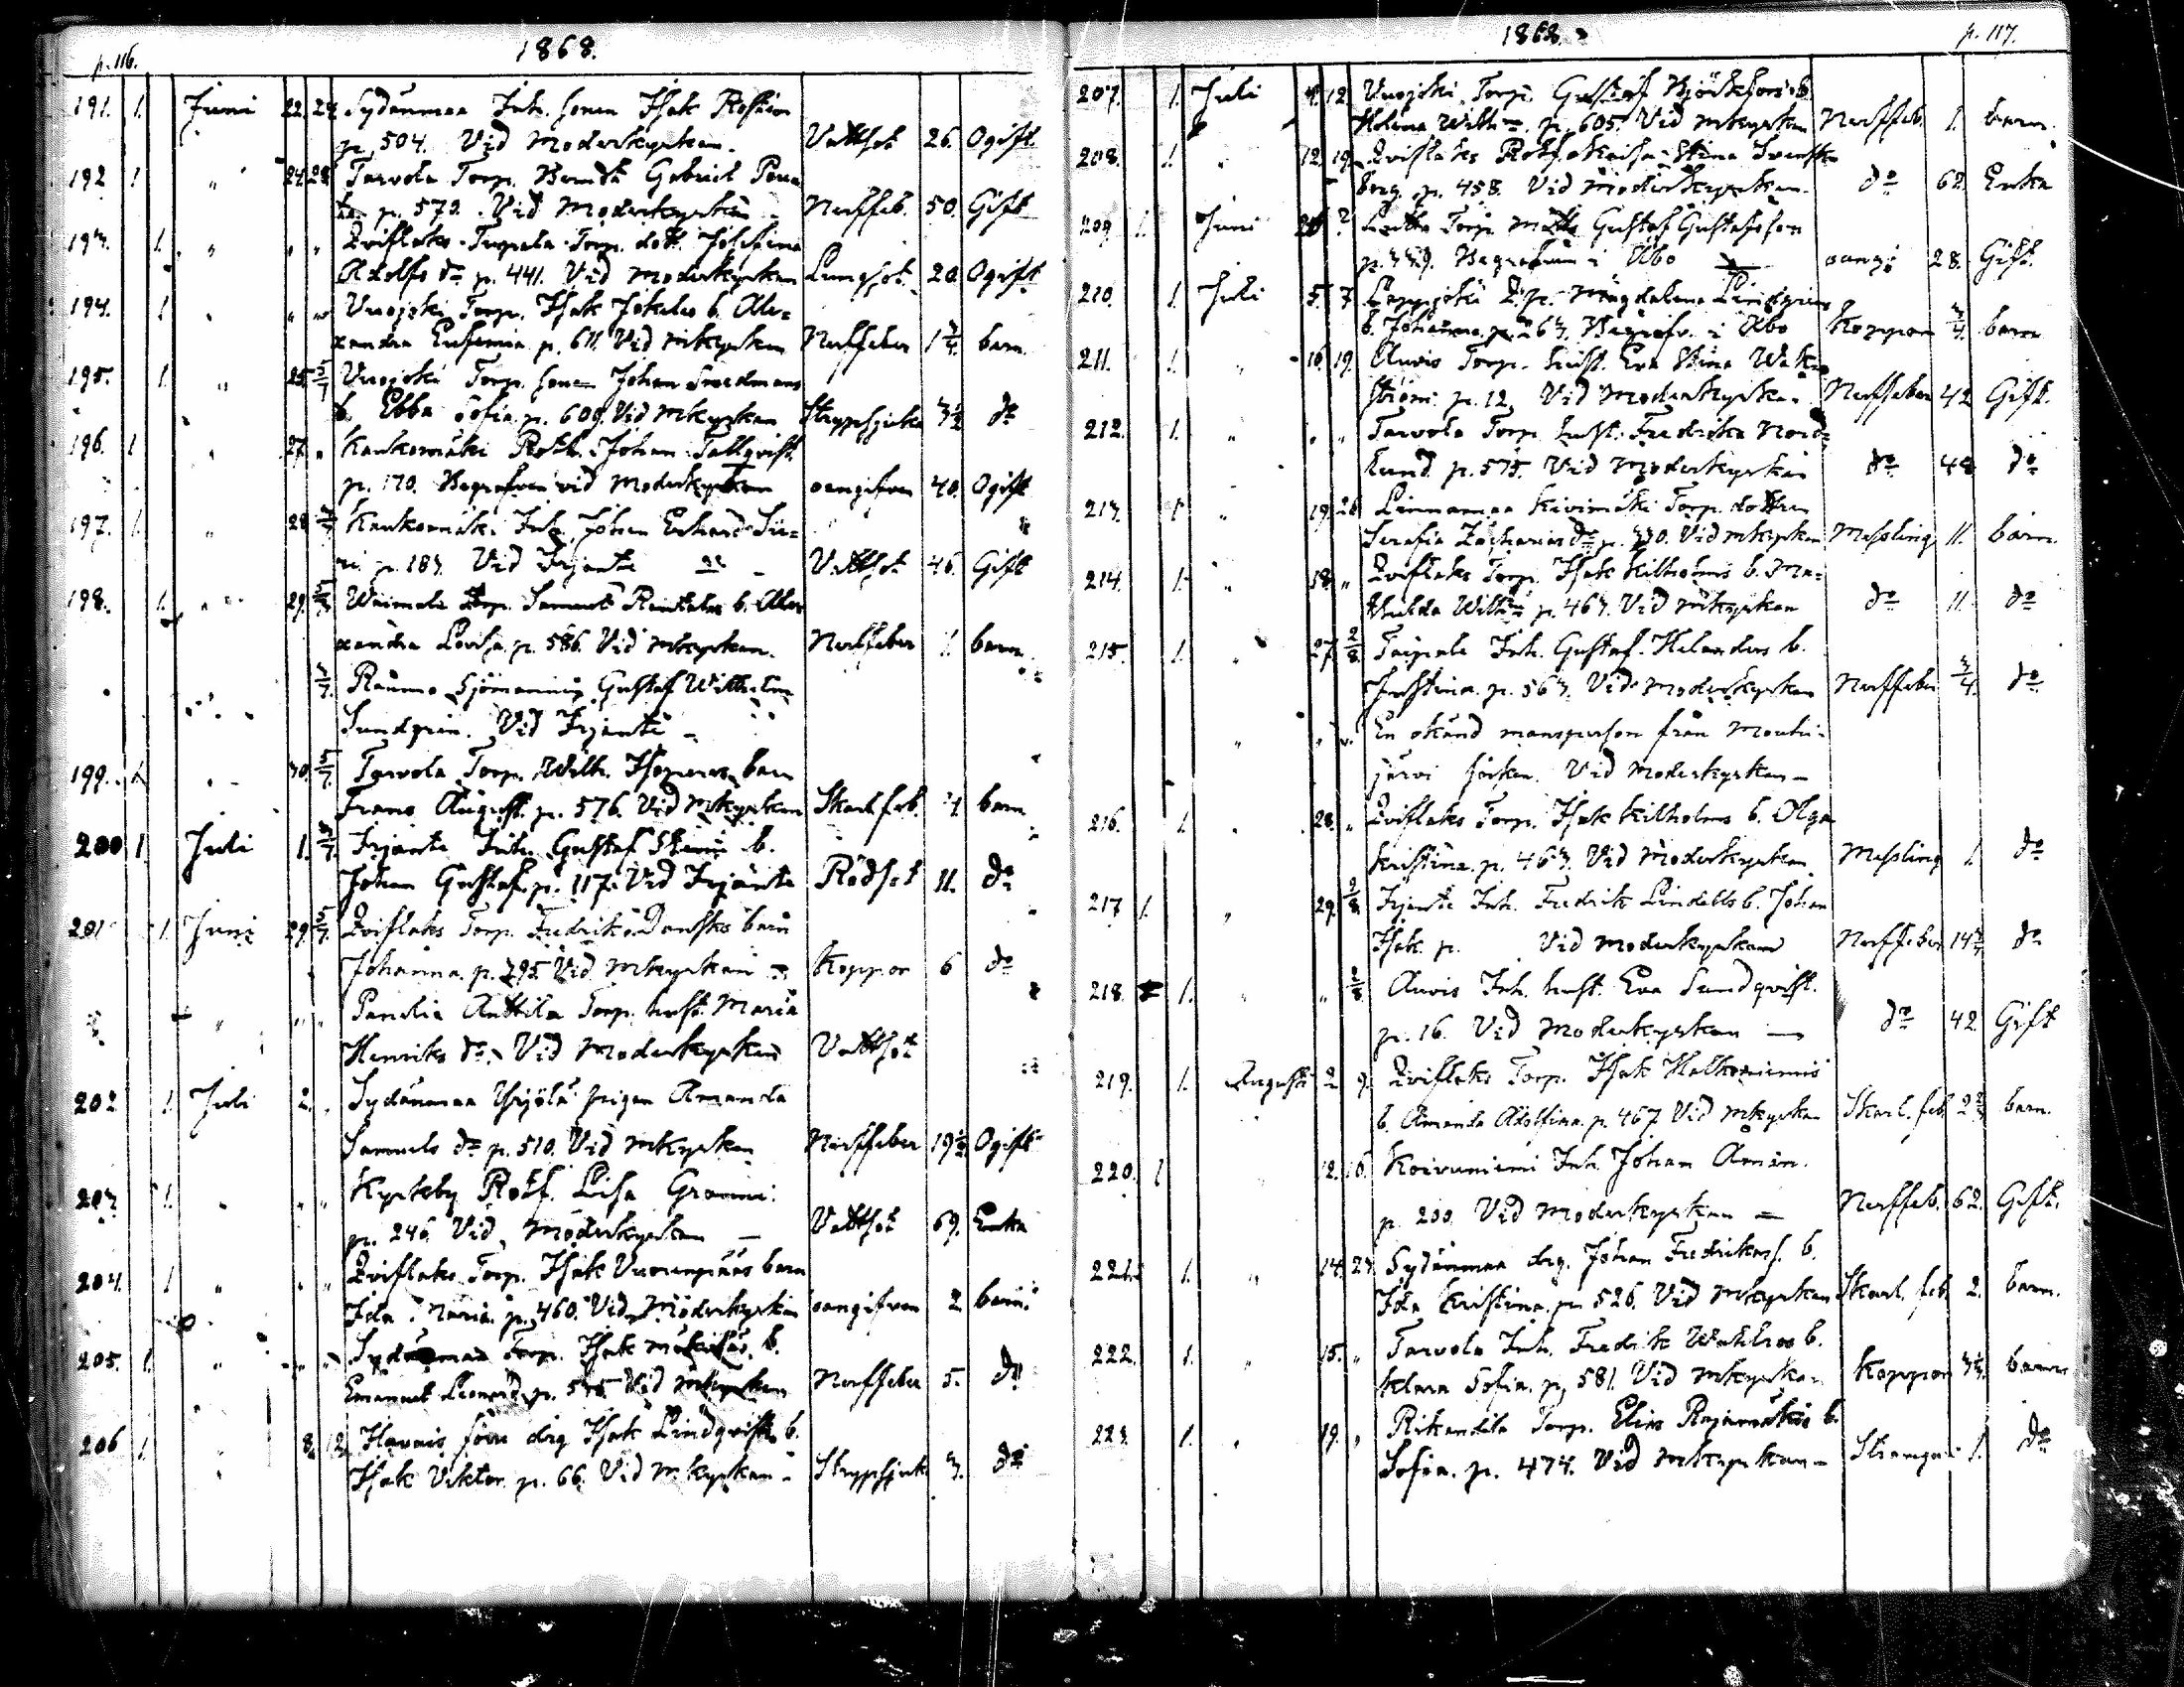 p. 116.
1868.
191. 1. Juni 22. 24. Sydänmaa Inh. sonen Isak
p. 504. Vid Moderkyrkan. Vattsot 26. Ogift
192 1 " 24. 28. Tarvola Torp. Gabriel
p. 572. Vid Moderkyrkan Nerffeb. 50. Gift
193. 1. " " " Qviflaks Torp. dott. Josefina
Adolfs dr p. 441. Vid Moderkyrkan Lungsot. 20. Ogift
194. 1. " " " Vuojoki Torp. Isak b. Alex=
andra Eufemia p. 611. Vid mkyrkan Nerffeber 1 3/4. barn
195. 1. " 25. 5/7 Vuojoki Torp. sonen Johan
b. Ebba Sofia p. 609. Vid mkyrkan Strypsjuka 3 1/2 do
196. 1 " 27. " Kaukomäki Roth. Johan Tallqvist
p. 170. Begrafven vid Moderkyrkan oangifven 40. Ogift
197. 1. " 28 Kaukomäki Inh. Johan Erhard
p. 183. Vid Irjante Vattsot 46. Gift
198. 1. " 29. 5/7 Torp. Samuel b. Alex
xandra Lovisa p. 586. Vid mkyrkan. Nerffeber 1. barn
5/7. Raumo Sjömannen Gustaf Wilhelm
Sundgren. Vid Irjante
199. 1. " 30. 5/7. Tarvola Torp. Wilh. barn
Frans August. p. 576. Vid mkyrkan Skarl. feb. 4. barn
200 1. Juli 1. 5/7. Irjante Inh. Gustaf b.
Johan Gustaf. p. 117. Vid Irjante Rödsot 11. do
201 1. Juni 29. 5/7. Qviflaks Torp. Fredrik Danskes barn
Johanna. p. 295 Vid mkyrkan Koppor 6 do
" " " Panelia Anttila Torp. hust. Maria
Henriks dr. Vid Moderkyrkan Vattsot
202 1. Juli 2. " Sydänmaa pigan Amanda
Samuels dr p. 510. Vid mkyrkan Nerffeber 19 1/2 Ogift
203 1. " " " Kyrkby Rothj. Lisa
p. 246. Vid Moderkyrkan Vattsot 69. Enka
204. 1 " " " Qviflaks Torp. Isak barn
Ida Maria p. 460. Vid Moderkyrkan oangifven 2 barn.
205. 1. " " " Sydänmaa Torp. Isak b.
Emanuel Leonard p. Vid mkyrkan Nerffeber 5. do
206 1. " 8. 12. drg Isak Lindqvists b.
Isak Viktor. p. 66. Vid mkyrkan Strypsjuk. 3. do
1868.
p. 117.
207. 1. Juli 4. 12. Vuojoki Torp. Gustaf Björkfors b.
Helena Wilh. p. 605. Vid mkyrkan Nerffeb. 1. barn.
208. 1. " 12. 19. Qviflaks Rothj. Kaisa Stina Svensk
berg. p. 458. Vid Moderkyrkan. do 62. Enka
209. 1. Juni ? Torp. Matts Gustaf Gustafsson
p. Begrafven i Åbo oangif 28. Gift.
210. 1. Juli 5. 7 Magdalena Lindgrens
b. Johanna p. 263. Begrafv. i Åbo Koppor 3/4 barn
211. 1. " 16. 19. Auvis Torp. hust. Eva Stina
ström p. 12. Vid Moderkyrkan Nerffeber 42 Gift.
212. 1. " " " Tarvola Torp. hust. Fredrika Nord=
lund p. 575. Vid Moderkyrkan do 48 do
213. 1 " 19. 26. Linnamaa Kivimäki Torp. dottren
Serafia Zacharias dr p. Vid mkyrkan Messling 11. barn.
214. 1. " 18. " Qviflaks Torp. Isak Kilholms b. Ma=
thilda Wilh. p. 463. Vid mkyrkan do 11. do
215. 1. " 27. 2/8. Taipale Inh. Gustaf Helanders b.
Justina. p. 563. Vid Moderkyrkan Nerffeber 3/4. do
" " " En okänd mansperson från Mouhi=
järvi socken. Vid Moderkyrkan
216. 1. " 28. " Qviflaks Torp. Isak Kilholms b. Olga
Kristina. p. 463. Vid Moderkyrkan Messling 1. do
217 1. " 29. 2/8. Irjante Inh. Fredrik Lindells b. Johan
Isak p. Vid Moderkyrkan Nerffeber 14 3/4 do
218. 1. " " 2/8 Auvis Inh. hust. Eva Sundqvist.
p. 16. Vid Moderkyrkan do 42 Gift
219. 1. Augusti 2 9. Qviflaks Torp. Isak Halkoniemis
b. Amanda Adolfina. p. 467 Vid mkyrkan Skarl. feb. 2 3/4 barn.
220. 1 12. 16. Koivuniemi Inh. Johan Amin.
p. 200. Vid Moderkyrkan Nerffeb. 62. Gift.
221. 1. " 14. 23. Sydänmaa drg. Johan Fredrikss. b.
Ida Kristina. p. 526. Vid mkyrkan Skarl. feb. 2. barn.
222. 1. " 15. " Tarvola Inh. Fredrik Wahlroos b.
Klara Sofia. p. 581. Vid mkyrkan Koppor barn
223. 1. " 19. " Rikantila Torp. Elias b.
Sofia. p. 474. Vid mkyrkan 1. do